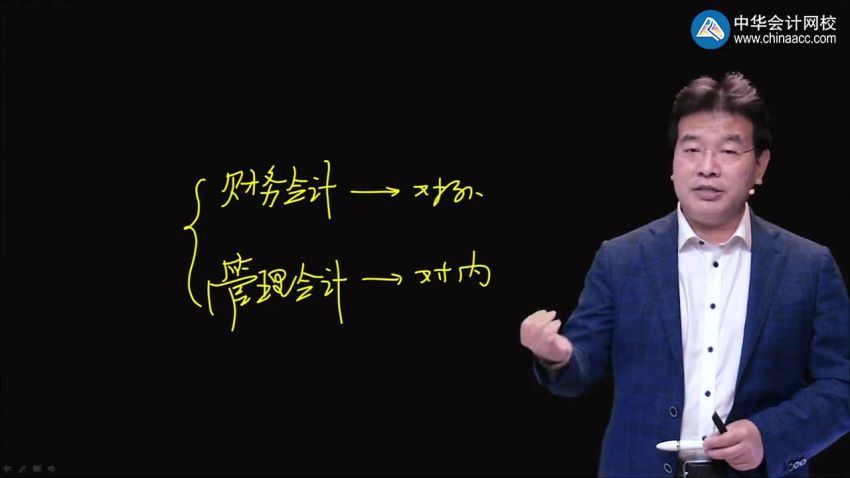 中华会计网校
www.chinaacc.com
财务会计 → 对外
管理会计 → 对内